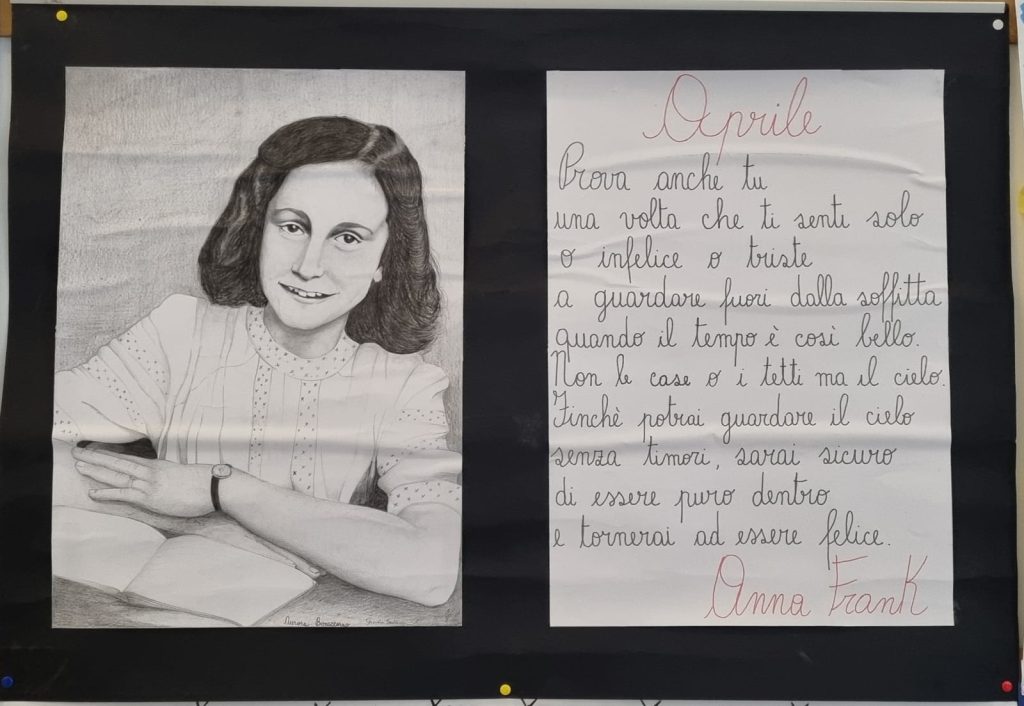 Aprile
Prova anche tu
una volta che ti senti solo
o infelice o triste
a guardare fuori dalla soffitta
quando il tempo è così bello.
Non le case o i tetti ma il cielo.
Finchè potrai guardare il cielo
senza timori, sarai sicuro
di essere puro dentro
e tornerai ad essere felice.
Anna Frank